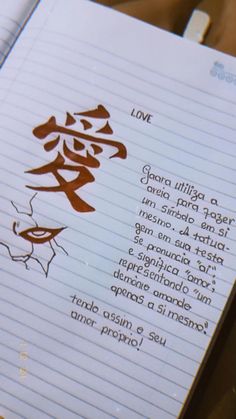 LOVE
愛
Gaara utiliza a
areia para fazer
um símbolo em si
mesmo. A tatua-
gem em sua testa
se pronuncia "ai"
e significa "amor",
representando "um
demônio amando
apenas a si mesmo",
tendo assim e seu
amor próprio!